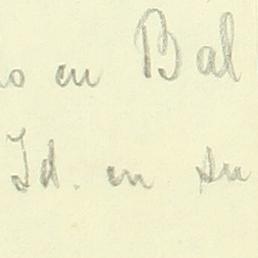 o en Bal
Id. en su